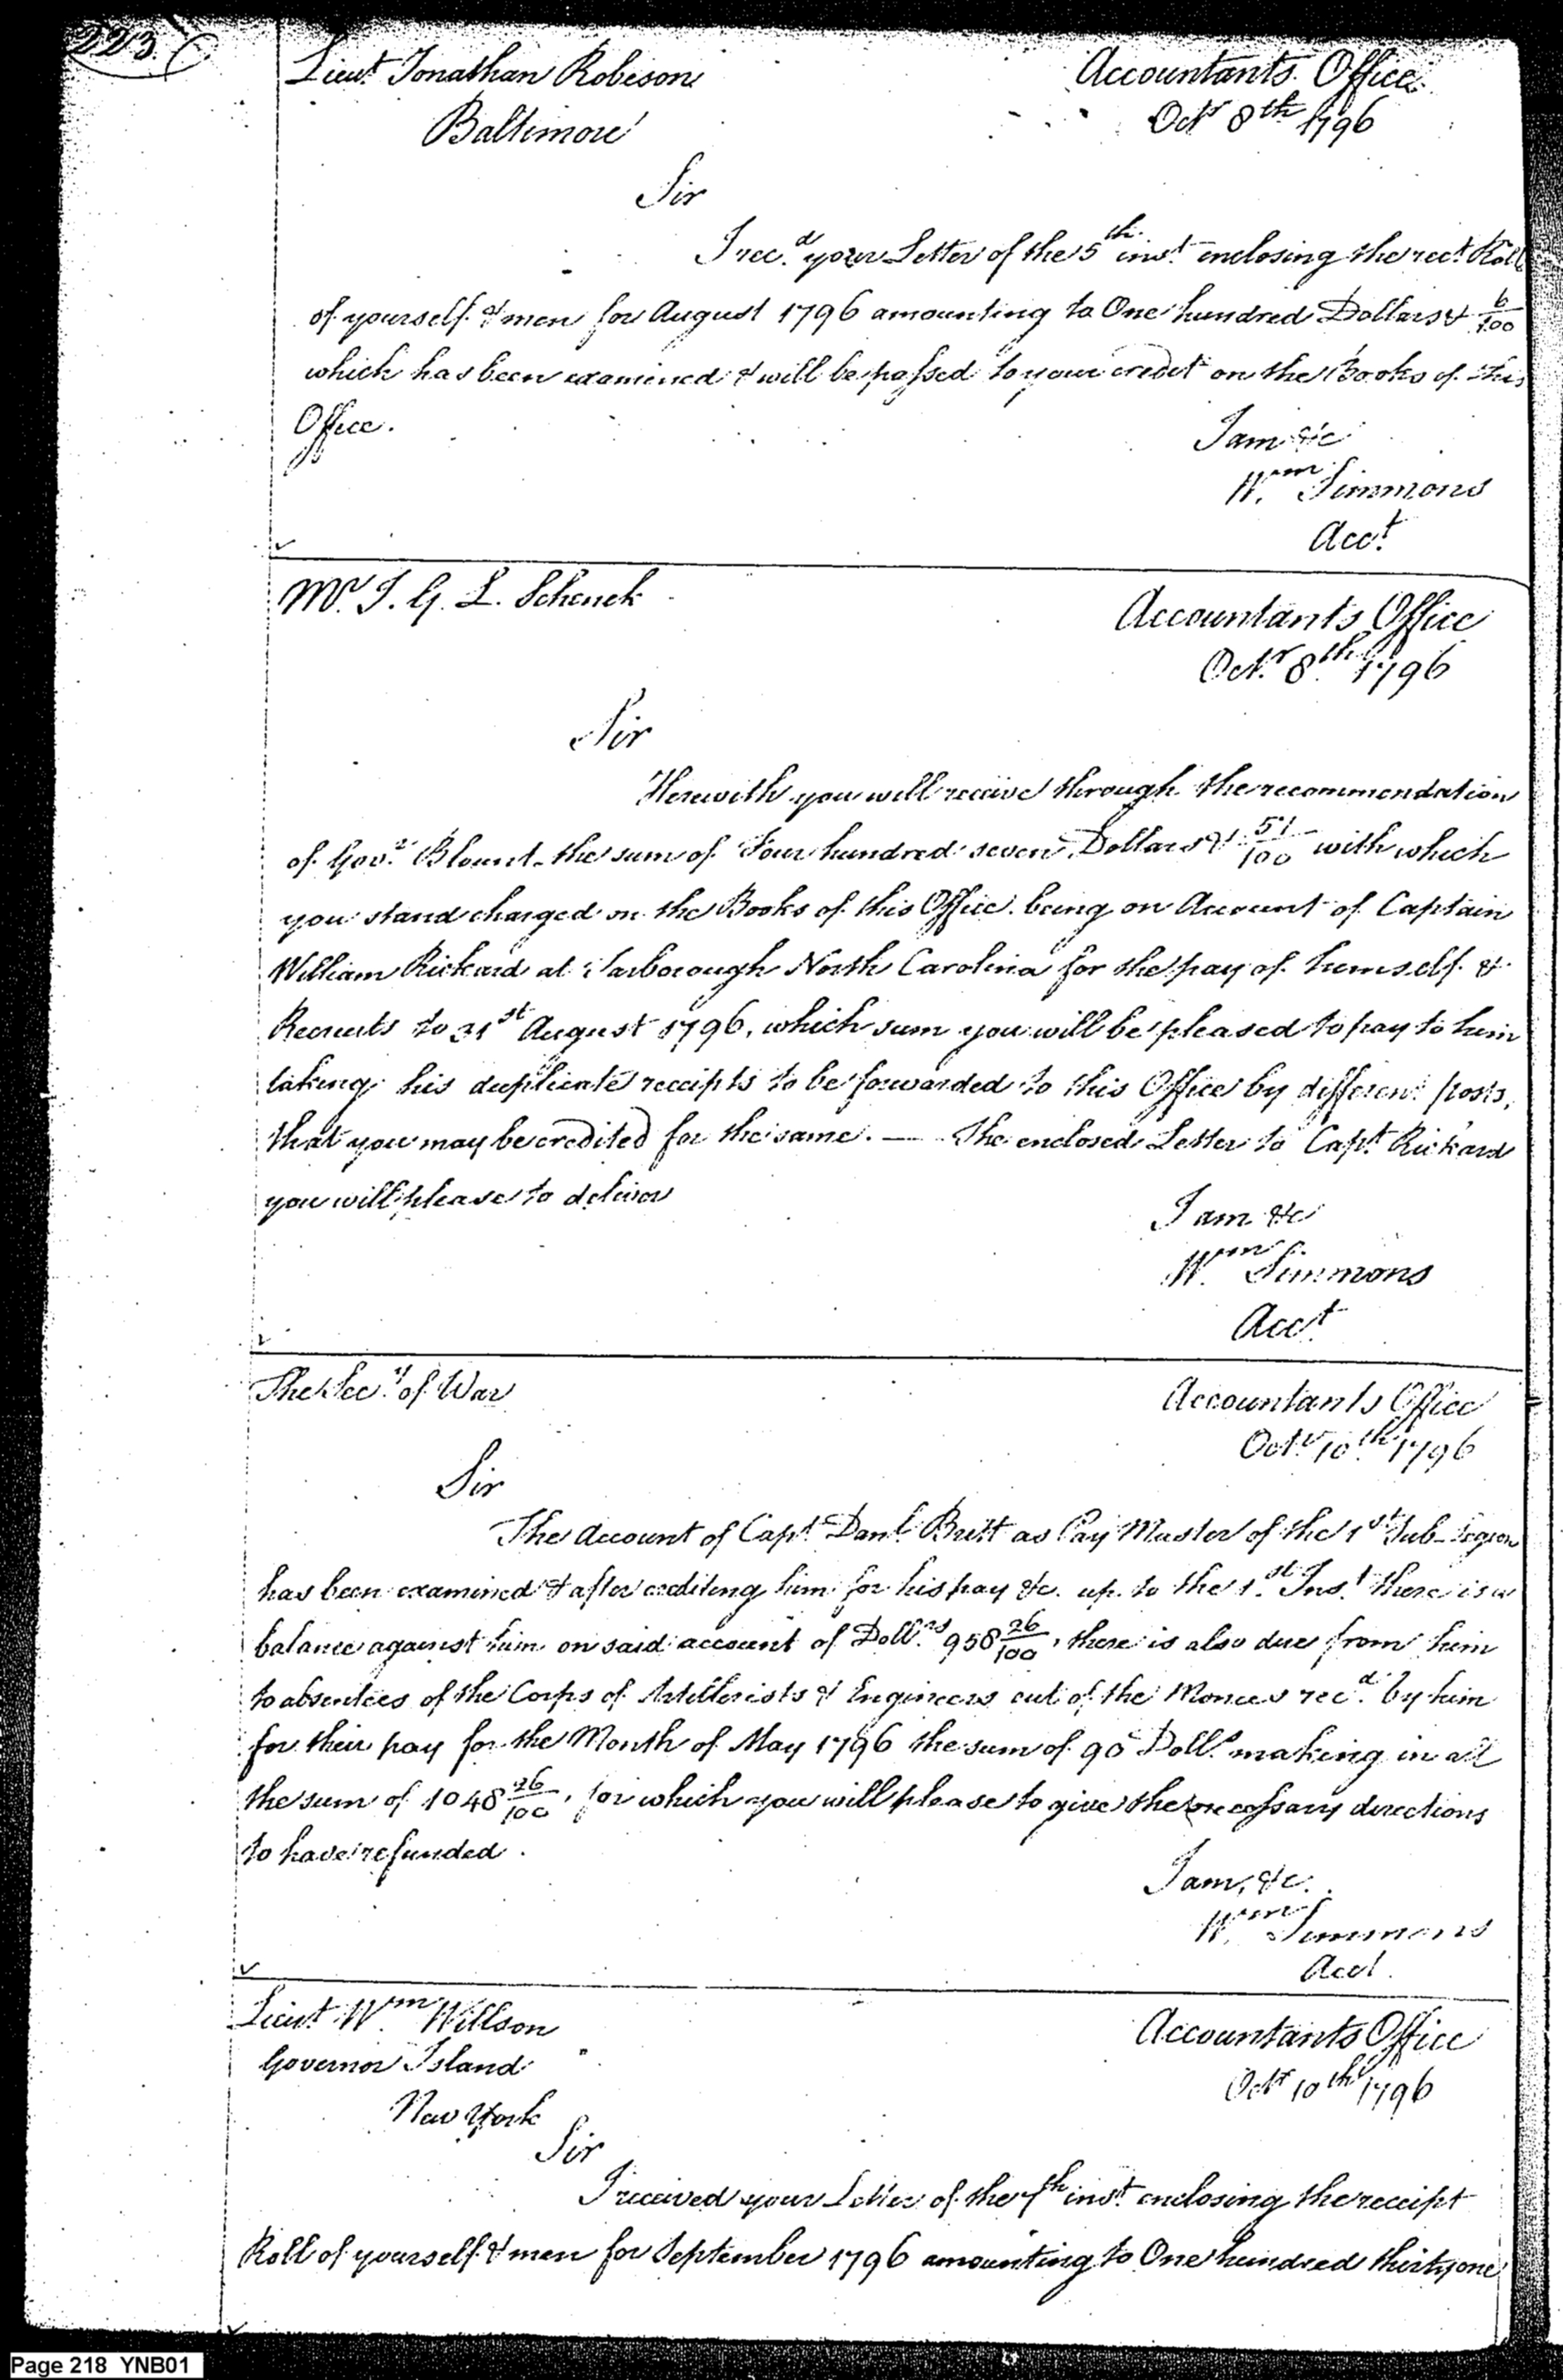 223
Lieut Jonathan Robeson
Accountants Office
Baltimore
Octr 8th 1796
Sir
I recd your Letter of the 5th inst enclosing the rect Roll
of yourself & men for August 1796 amounting to One hundred Dollars & 6/100
which has been examined & will be passed to your credit on the Books of this
Office.
I am &c
Wm Simmons
Acct
Mr. J. G. L. Schenck
Accountants Office
Octr 8th 1796
Sir
Herewith you will receive through the recommendation
of Govr Blount the sum of Four hundred seven Dollars & 51/100 with which
you stand charged on the Books of this Office being on Account of Captain
William Rickard at Tarborough North Carolina for the pay of himself &
Recruits to 31st August 1796, which sum you will be pleased to pay to him
taking his duplicate receipts to be forwarded to this Office by different posts,
that you may be credited for the same. — The enclosed Letter to Capt Rickard
you will please to deliver
I am &c
Wm Simmons
Acct
The Secy of War
Accountants Office
Octr 10th 1796
Sir
The Account of Capt Danl Britt as Pay Master of the 1st Sub-Legion
has been examined & after crediting him for his pay &c. up to the 1st Inst there is a
balance against him on said account of Dollrs 958 26/100, there is also due from him
to absentees of the Corps of Artillerists & Engineers out of the Monies recd by him
for their pay for the Month of May 1796 the sum of 90 Dolls making in all
the sum of 1048 26/100, for which you will please to give the necessary directions
to have refunded.
I am, &c.
Wm Simmons
Acct.
Lieut Wm Willson
Accountants Office
Governor Island
Octr 10th 1796
New York
Sir
I received your Letter of the 7th inst enclosing the receipt
Roll of yourself & men for September 1796 amounting to One hundred thirty one
Page 218 YNB01